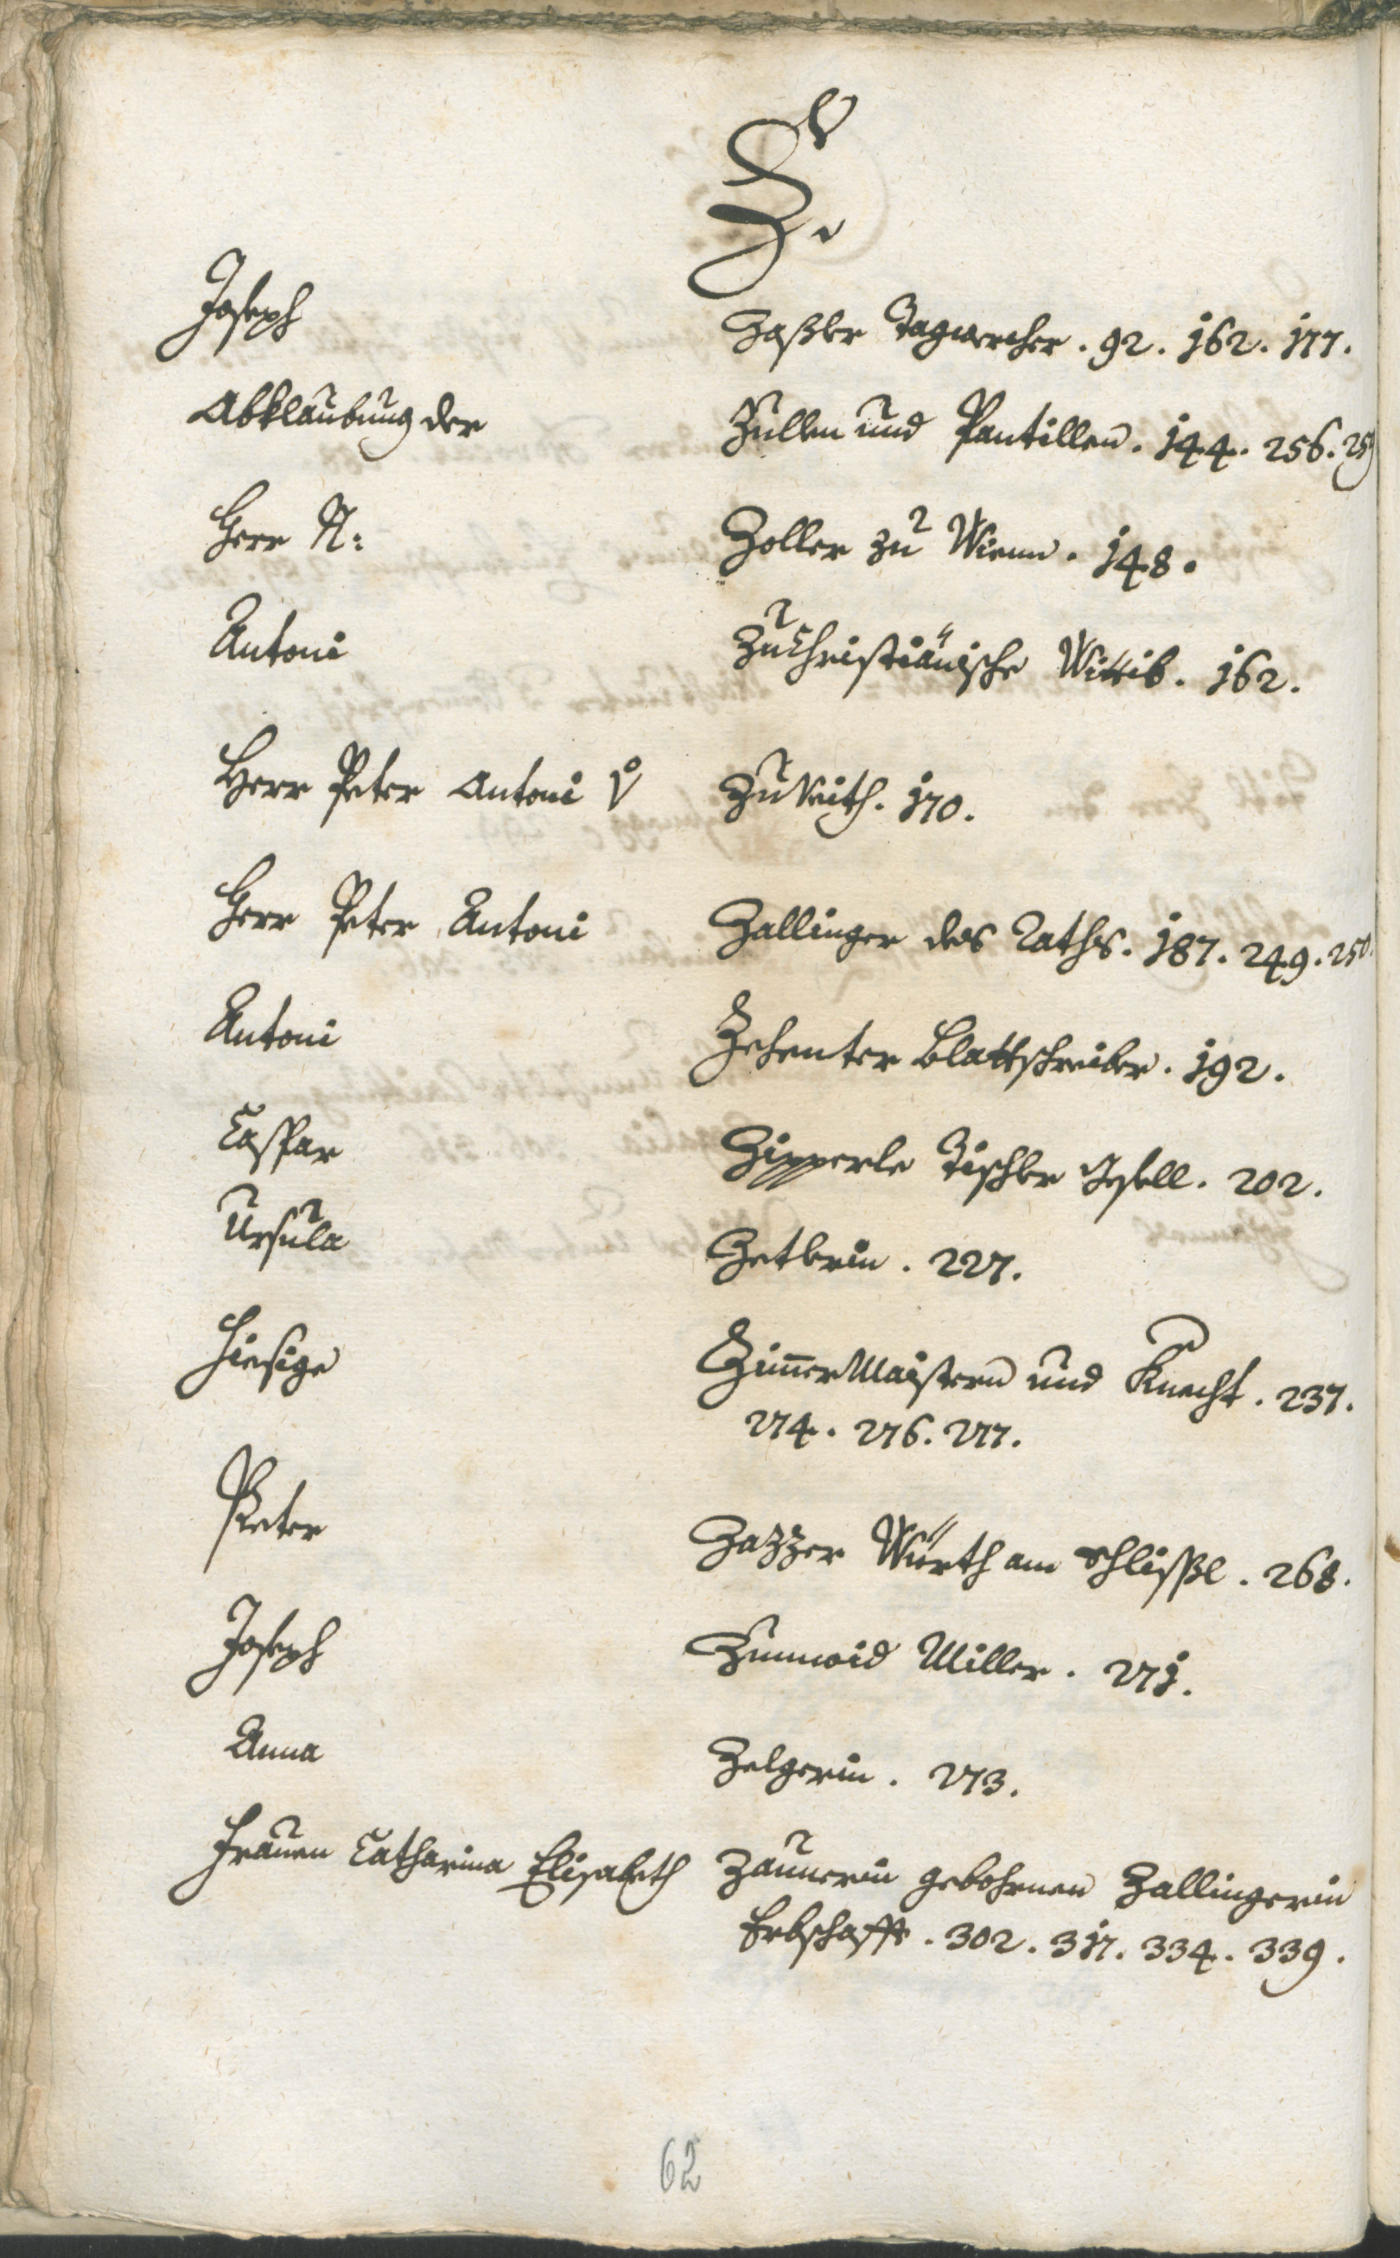 Z.
Joseph Zaßler Tagwercher . 92 . 162 . 177 .
Abklaubung der Zullen und Pantillen . 144 . 256 . 257
Herr N: Zoller zu Wienn . 148 .
Antoni Zuchristianische Wittib . 162 .
Herr Peter Antoni v Zu Veith . 170 .
Herr Peter Antoni Zallinger des Raths . 187 . 249 . 250 .
Antoni Zehenter Blattschreiber . 192 .
Caspar Zipperle Tischler Gsell . 202 .
Ursula Zetlerin . 227 .
Hiesige Zimmer Maistern und Knecht . 237 .
274 . 276 . 277 .
Peter Zazzer Würth am Schlissl . 268 .
Joseph Miller . 271 .
Anna Zelgerin . 273 .
Frauen Catharina Elisabeth Zaunerin gebohrnen Zallingerin
Erbschafft . 302 . 317 . 334 . 339 .
62